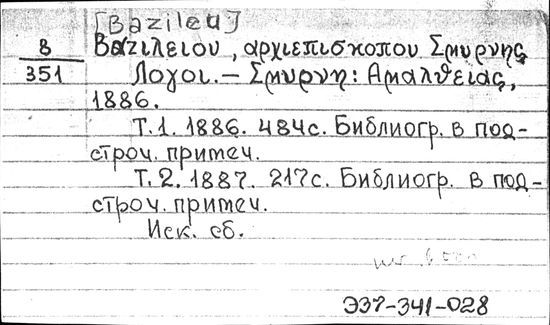 [Bazileu]
8/351
Βαζιλειου, αρχιεπισκοπου Σμυρνης
Λογοι. – Σμυρνη: Αμαλθειας,
1886.
Т.1. 1886. 484с. Библиогр. в под-
строч. примеч.
Т.2. 1887. 217с. Библиогр. в под-
строч. примеч.
Иск. сб.
Э37-341-028